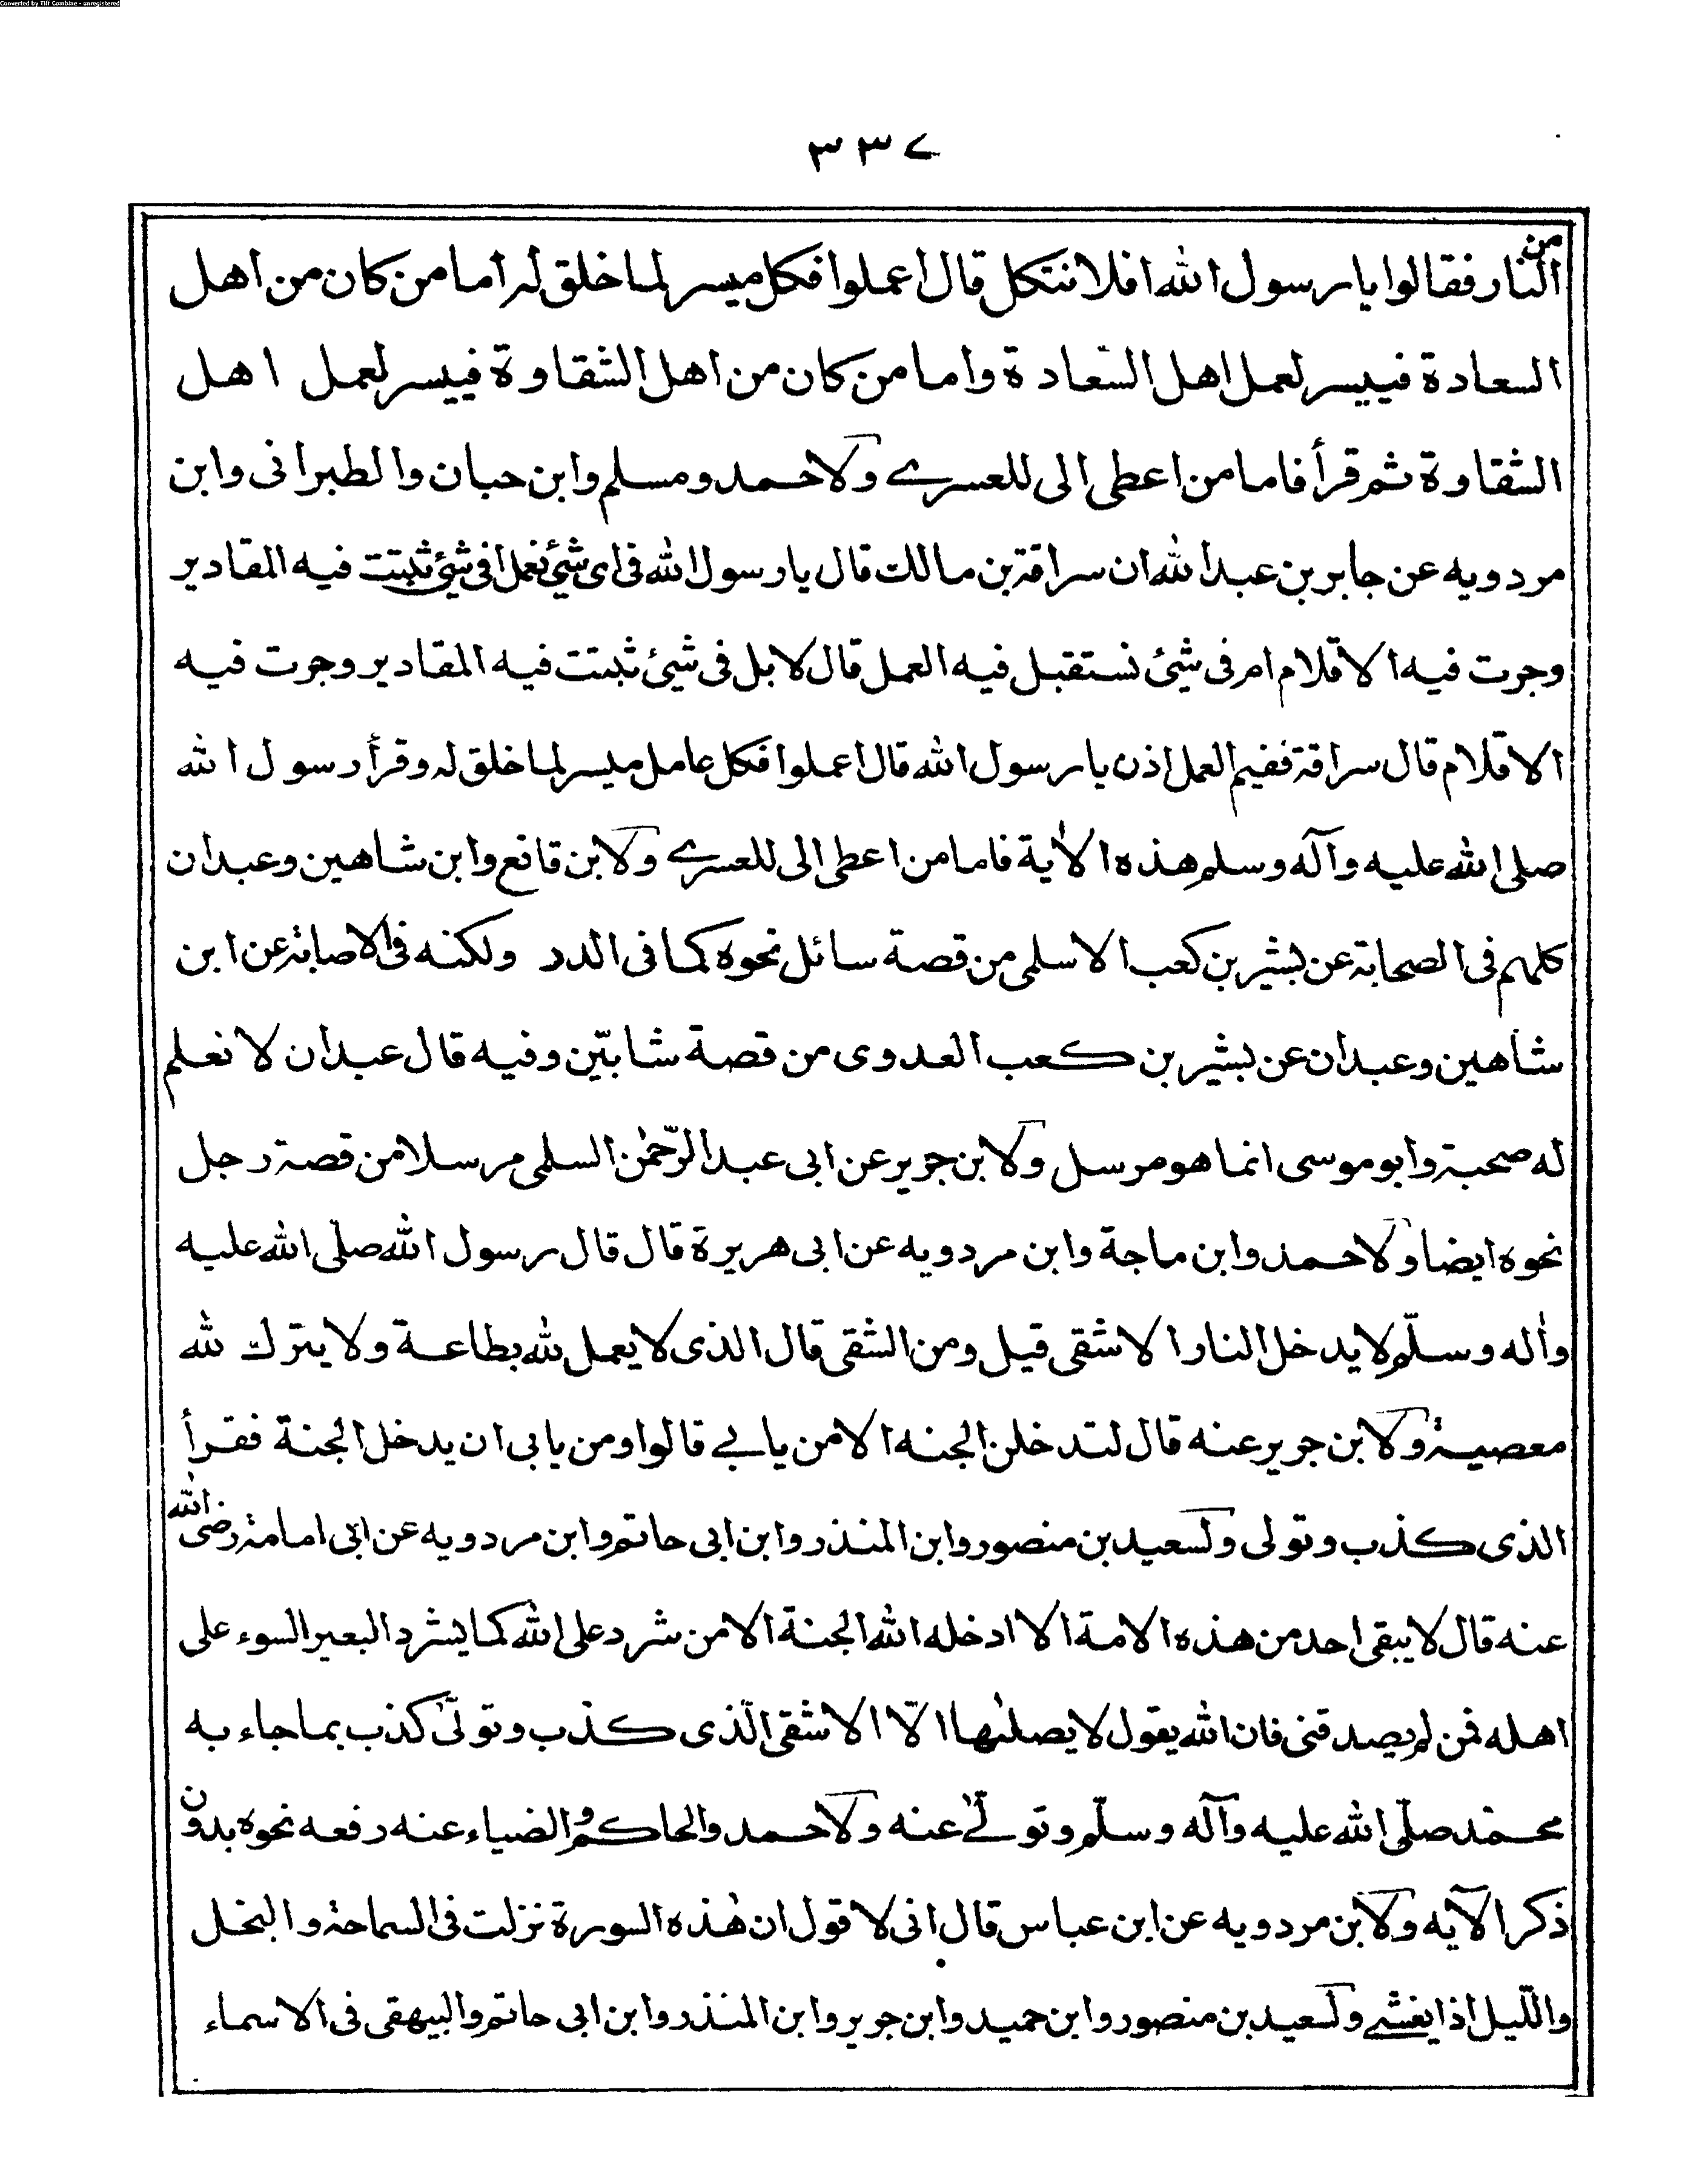 Converted by Tiff Combine - unregistered
٣٣٧
من
النار فقالوا يا رسول الله افلا نتكل قال اعملوا فكل ميسر لما خلق له اما من كان من اهل
السعادة فييسر لعمل اهل السعادة واما من كان من اهل الشقاوة فييسر لعمل اهل
الشقاوة ثم قرأ فاما من اعطى الى للعسرے ولاحمد ومسلم وابن حبان والطبرانى وابن
مردويه عن جابر بن عبد الله ان سراقة بن مالك قال يا رسول الله فى اى شئ نعمل افى شئ ثبتت فيه المقادير
وجرت فيه الاقلام ام فى شئ نستقبل فيه العمل قال لا بل فى شئ ثبتت فيه المقادير وجرت فيه
الاقلام قال سراقة ففيم العمل اذن يا رسول الله قال اعملوا فكل عامل ميسر لما خلق له وقرأ رسول الله
صلى الله عليه وآله وسلم هذه الاٰية فاما من اعطى الى للعسرے ولابن قانع وابن شاهين وعبدان
كلهم فى الصحابة عن بشير بن كعب الاسلمى من قصة سائل نحوه كما فى الدر ولكنه فى الاصابة عن ابن
شاهين وعبدان عن بشير بن كعب العدوى من قصة شابّين وفيه قال عبدان لا نعلم
له صحبة وابو موسى انما هو مرسل ولابن جرير عن ابى عبد الرّحمٰن السلمى مرسلا من قصة رجل
نحوه ايضا ولاحمد وابن ماجة وابن مردويه عن ابى هريرة قال قال رسول الله صلّى الله عليه
واٰله وسلّم لا يدخل النار الا شقى قيل ومن الشقى قال الذى لا يعمل لله بطاعة ولا يترك لله
معصية ولابن جرير عنه قال لتدخلن الجنه الا من يابے قالوا ومن يابى ان يدخل الجنة فقرأ
الذى كذب وتولى ولسعيد بن منصور وابن المنذر وابن ابى حاتم وابن مردويه عن ابى امامة رضى الله
عنه قال لا يبقى احد من هذه الامة الا ادخله الله الجنة الا من شرد على الله كما يشرد البعير السوء على
اهله فمن لم يصدقنى فان الله يقول لا يصلٰىها الّا الاشقى الّذى كذب وتولّىٰ كذب بما جاء به
محمّد صلّى الله عليه وآله وسلّم وتولّےٰ عنه ولاحمد والحاكم والضياء عنه رفعه نحوه بدون
ذكر الآيه ولابن مردويه عن ابن عباس قال انى لاقول ان هٰذه السورة نزلت فى السماحة والبخل
والّليل اذا يغشے ولسعيد بن منصور وابن حميد وابن جرير وابن المنذر وابن ابى حاتم والبيهقى فى الاسماء